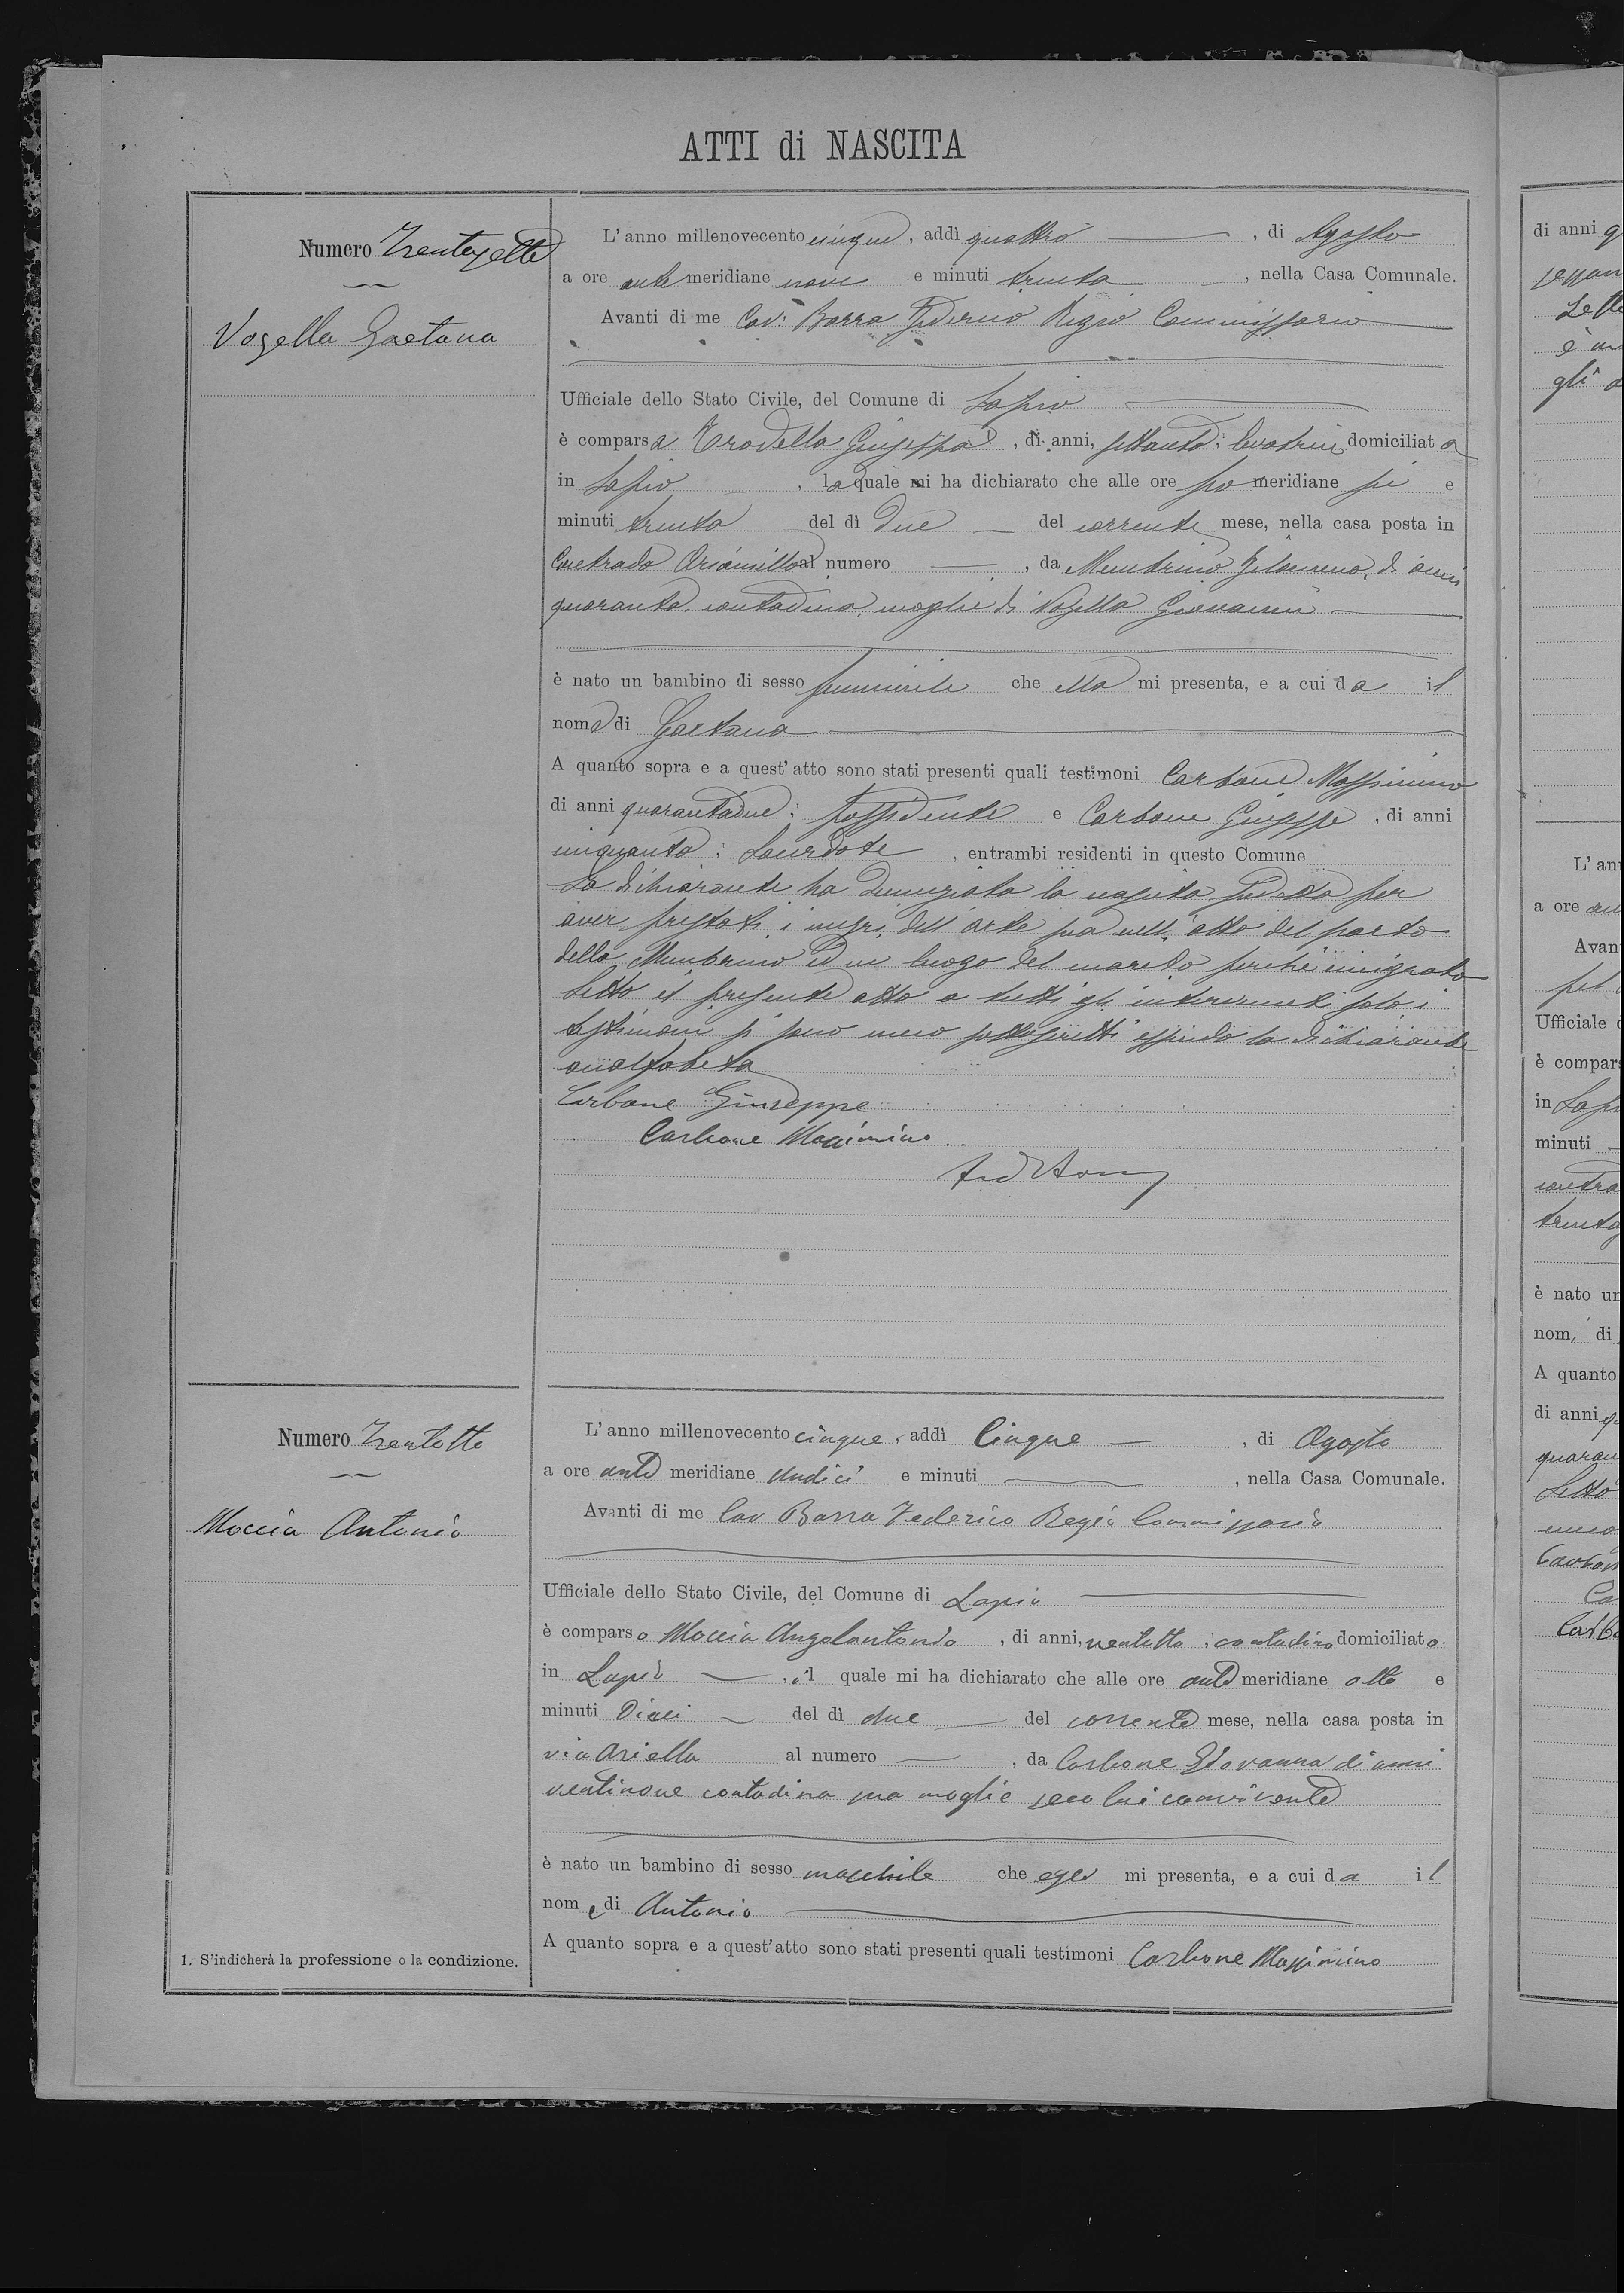 ATTI di NASCITA
Numero Trentasette
Vogella Gaetana
L'anno millenovecento cinque, addì quattro, di Agosto
a ore antemeridiane nove e minuti trenta, nella Casa Comunale.
Avanti di me Cav. Barra Federico Regio Commissario
Ufficiale dello Stato Civile, del Comune di Lapio
è comparsa Trodella Giuseppa, di anni, settanta; levatrice domiciliata
in Lapio, la quale mi ha dichiarato che alle ore pomeridiane sei e
minuti trenta del dì due del corrente mese, nella casa posta in
Contrada al numero, da Filomena, di anni
quaranta contadina, moglie di Vogella Giovanni
è nato un bambino di sesso femminile che ella mi presenta, e a cui da il
nome di Gaetana
A quanto sopra e a quest'atto sono stati presenti quali testimoni Carbone Massimino
di anni quarantadue; possidente e Carbone Giuseppe, di anni
cinquanta; Sacerdote, entrambi residenti in questo Comune
La dichiarante ha denunziata la nascita suddetta per
aver prestati i dell'arte sua nell'atto del parto
della ed in luogo del marito perché emigrato
Letto il presente atto a tutti gli intervenuti solo i
testimoni si sono meco sottoscritti essendo la dichiarante
analfabeta
Carbone Giuseppe
Carbone Massimino
Numero Trentotto
Moccia Antonio
L'anno millenovecento cinque, addì Cinque, di Agosto
a ore ante meridiane undici e minuti, nella Casa Comunale.
Avanti di me Cav Barra Federico Regio Commissario
Ufficiale dello Stato Civile, del Comune di Lapio
è comparso Moccia Angelantonio, di anni, ventotto; contadino domiciliato
in Lapio, il quale mi ha dichiarato che alle ore ante meridiane otto e
minuti Dieci del dì due del corrente mese, nella casa posta in
via Ariella al numero, da Carbone Giovanna di anni
ventinove contadina sua moglie seco lui convivente
è nato un bambino di sesso maschile che egli mi presenta, e a cui da il
nome di Antonio
A quanto sopra e a quest'atto sono stati presenti quali testimoni Carbone Massimino
1. S'indicherà la professione o la condizione.
di anni
gli
L'an
a ore
Avan
Ufficiale
è compar
in Lapi
minuti
è nato un
nom, di
A quanto
di anni